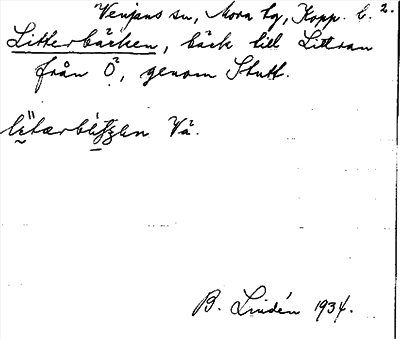 Venjans sn, Mora tg, Kopp. l. 2.
Litterbäcken, bäck till Littran
från Ö, genom Slutt.
Vå.
B. Lindén 1934.